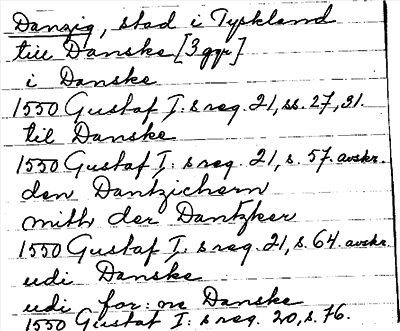 Danzig, stad i Tyskland
till Danske [3 ggr]
i Danske
1550 Gustaf I:s reg. 21, ss. 27, 31.
til Danske
1550 Gustaf I:s reg. 21, s. 57. avskr.
den Dantzichern
mith der Dantzker
1550 Gustaf I:s reg. 21, s. 64. avskr.
udi Danske
udi for:ne Danske
1550 Gustaf I:s reg. 20, s. 76.